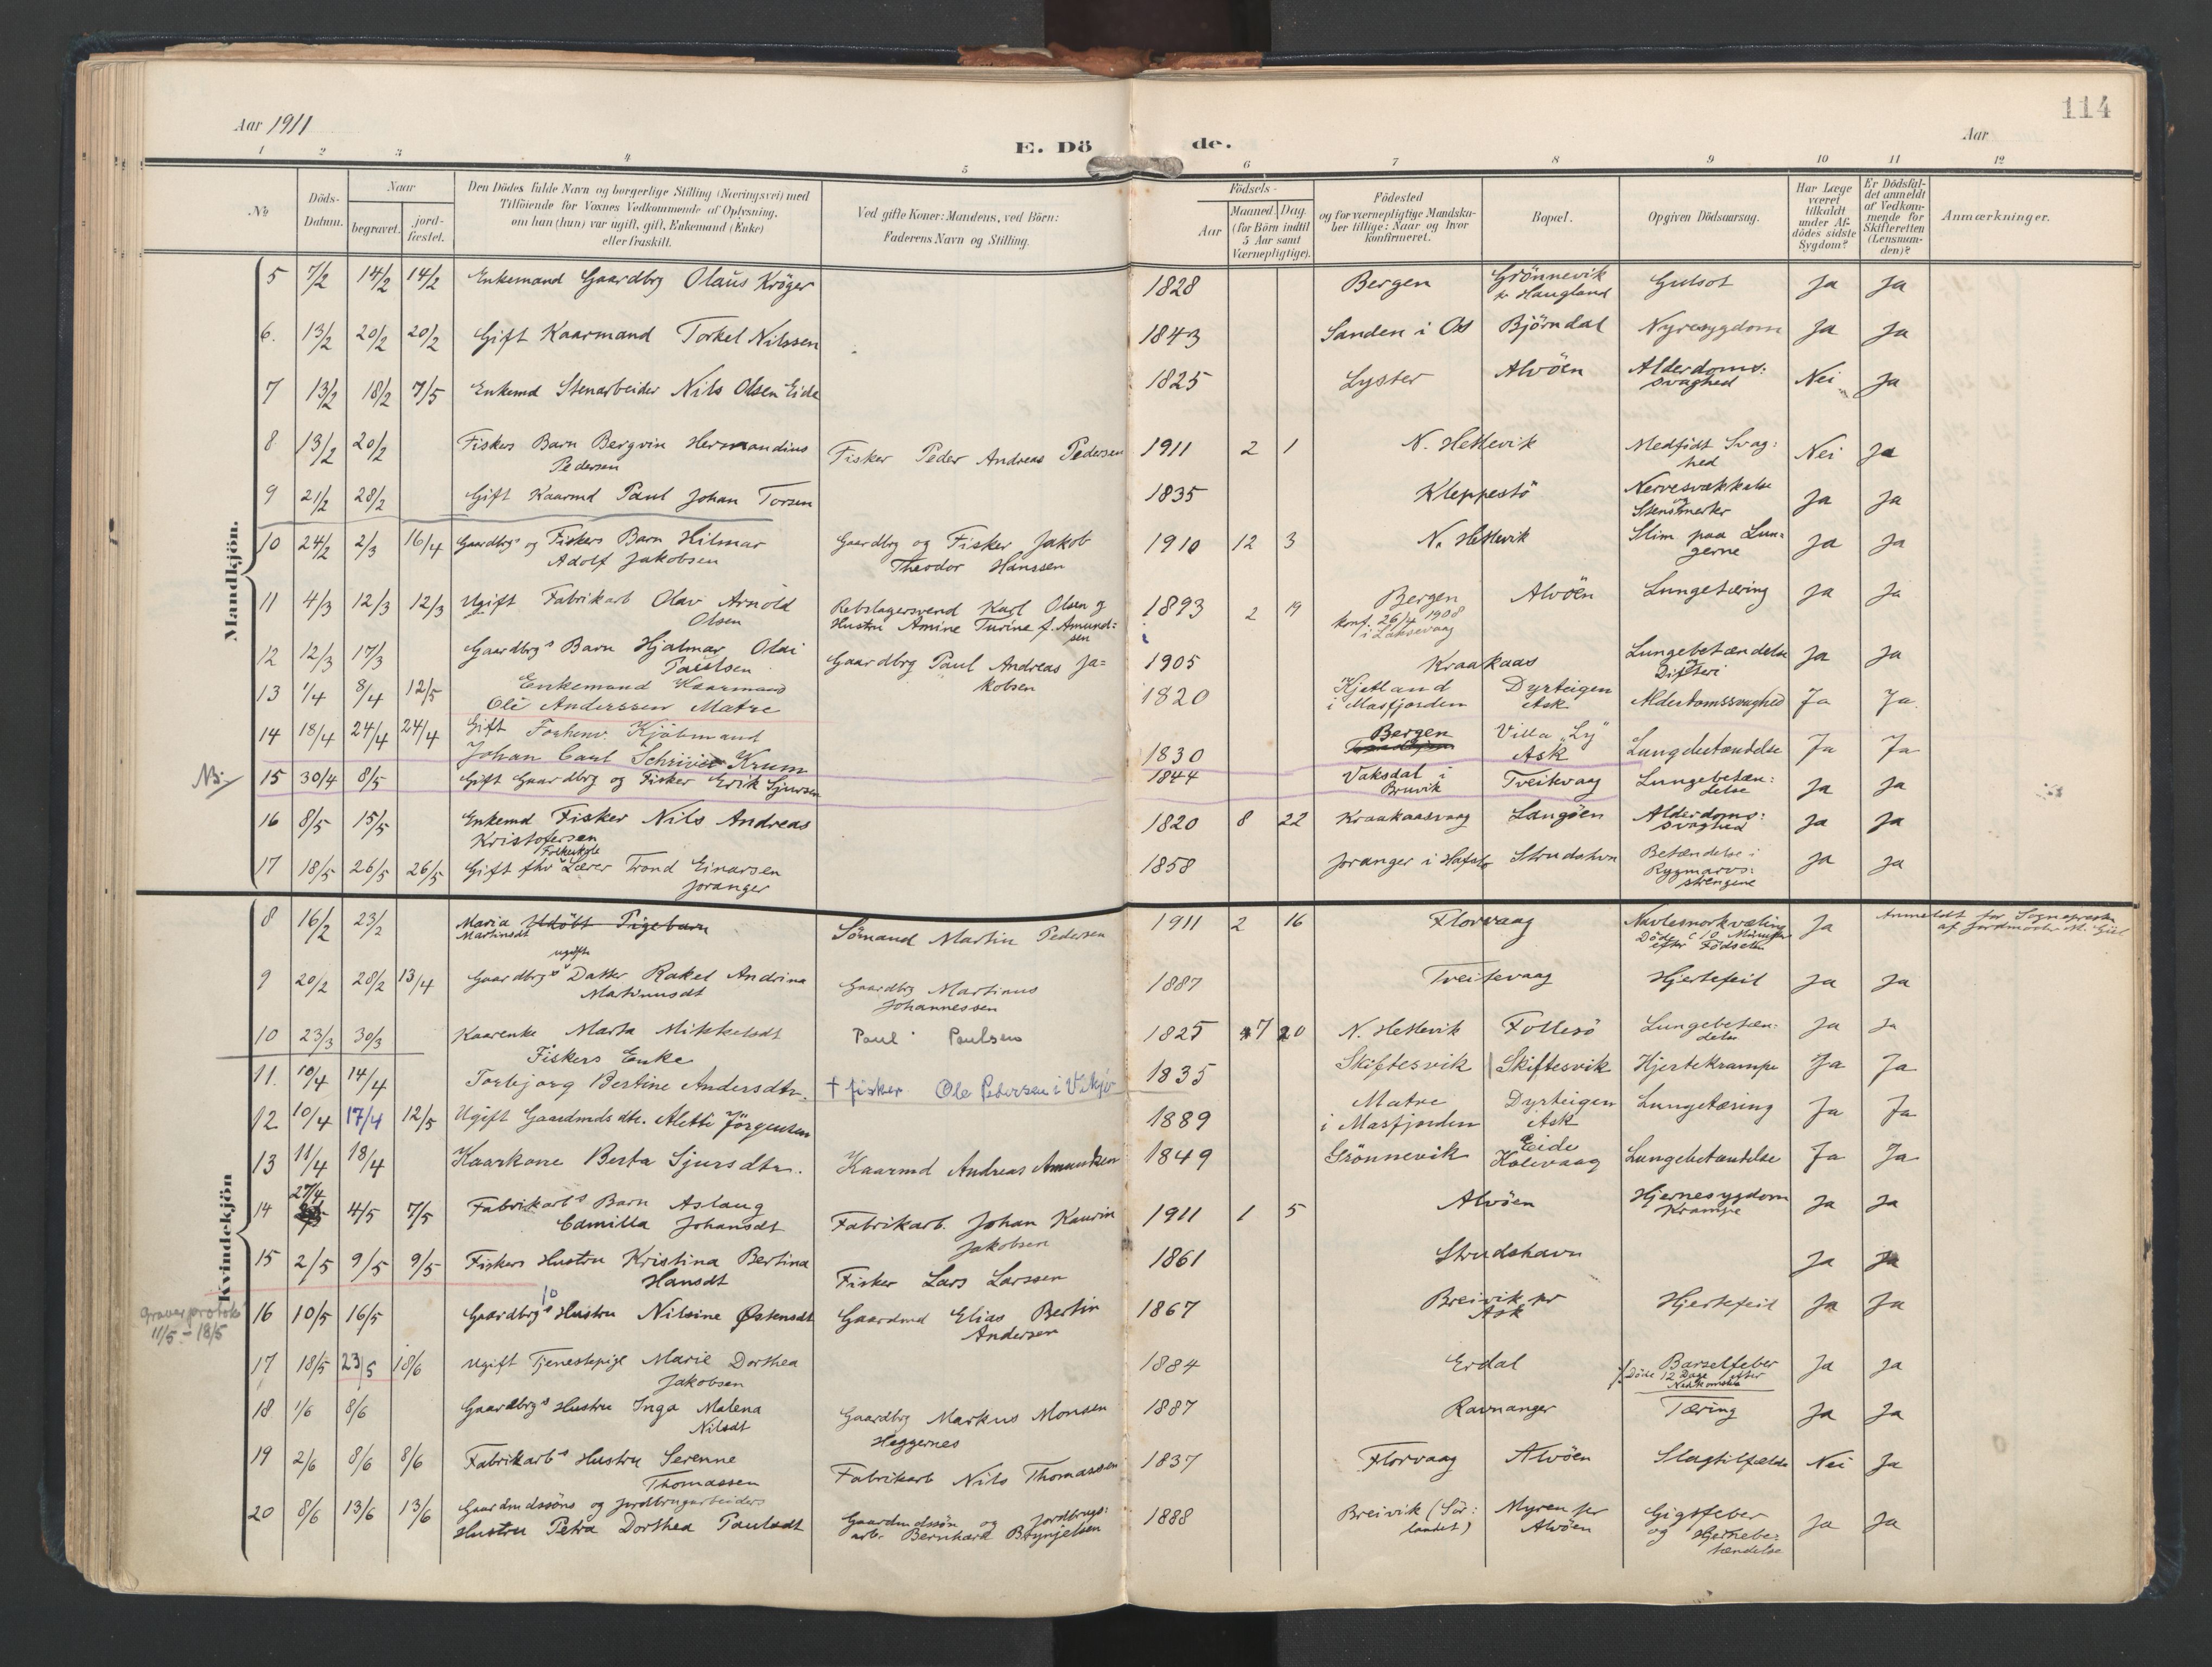 114
Aar 1911
E. Dö de.
Aar
1 2 3 4 5 6 7 8 9 10 11 12
No
Döds-Datum.
Naar
begravet.
jord-fæstet.
Den Dödes fulde Navn og borgerlige Stilling (Næringsvei) med
Tilföiende for Voxnes Vedkommende af Oplysning,
om han (hun) var ugift, gift, Enkemand (Enke)
eller fraskilt.
Ved gifte Koner: Mandens, ved Börn:
Faderens Navn og Stilling.
Födsels-
Aar
Maaned. Dag.
(for Börn indtil
5 Aar samt
Værnepligtige).
Födested
og for værnepligtige Mandska-
ber tillige: Naar og hvor
konfirmeret.
Bopæl.
Opgiven Dödsaarsag.
Har Læge
været
tilkaldt
under Af-
dödes sidste
Sygdom?
Er Dödsfal-
det anmeldt
af Vedkom-
mende for
Skifteretten
(Lensman-
den)?
Anmærkninger.
Mandkjön.
5 7/2 14/2 14/2 Enkemand Gaardbrg Olaus Kröger 1828 Bergen Grönnevik pr Haugland Gulsot Ja Ja
6. 13/2 20/2 20/2 Gift Kaarmand Torkel Nilssen 1843 Sanden i Os Björndal Nyresygdom Ja Ja
7 13/2 18/2 7/5 Enkemd Stenarbeider Nils Olsen Eide 1825 Lyster Alvöen Alderdoms: svaghed Nei Ja
8 13/2 20/2 Fiskers Barn Bergvin Hermandius Pedersen Fisker Peder Andreas Pedersen 1911 2 1 N. Hetlevik Medfödt Svag: hed Nei Ja
9 21/2 28/2 Gift Kaarmd Paul Johan Torsen 1835 Kleppestö Nervesvækkelse og Stensmerter Ja Ja
10 24/2 2/3 16/4 Gaardbrgs og Fiskers Barn Hilmar Adolf Jakobsen Gaardbrg og Fisker Jakob Theodor Hanssen 1910 12 3 N. Hetlevik Slim paa Lun= gerne Ja Ja
11 4/3 12/3 12/3 Ugift Fabrikarb Olav Arnold Olsen Rebslagersvend Karl Olsen og Hustru Amine Turine f. Amund: sen 1893 2 19 Bergen konf. 26/4 1908 i Laksevaag Alvöen Lungetæring Ja Ja
12 12/3 17/3 Gaardbrgs Barn Hjalmar Olai Paulsen Gaardbrg Paul Andreas Ja= kobsen 1905 Kraakaas Lungebetændelse Difteri Ja Ja
13 1/4 8/4 12/5 Enkemand Kaarmand Ole Anderssen Matre 1820 Kjetland i Masfjorden Dyrteigen Ask Alderdomssvaghed Ja Ja.
14 18/4 24/4 24/4 Gift Forhenv. Kjöbmand Johan Carl Schriver Krum 1830 Bergen Villa "Ly" Ask Lungebetændelse Ja Ja
NB 15 30/4 8/5 Gift Gaardbrg og Fisker Erik Sjursen 1844 Vaksdal i Bruvik Tveitevaag Lungebetæn: delse Ja Ja
16 8/5 15/5 Enkemd Fisker Nils Andreas Kristofersen 1820 8 22 Kraakaasvaag Langöen Alderdoms: svaghed Ja Ja
17 18/5 26/5 26/5 Gift fhv Folkeskole Lærer Trond Einarsen Joranger 1858 Joranger i Hafslo Strudshvn Betændelse i Rygmarvs: strengene Ja Ja
Kvindekjön
8 16/2 23/2 Maria Martinsdt Udöbt Pigebarn Sömand Martin Pedersen 1911 2 16 Florvaag Navlesnorkvæling Döde c 10 Minutter efter Födselen Ja Anmeldt for Sognepresten af Jordmoder
9 20/2 28/2 13/4 Gaardbrgs ugifte Datter Rakel Andrina Martinusdt Gaardbrg Martinus Johannessen 1887 Tveitevaag Hjertefeil Ja Ja
10 23/3 30/3 Kaarenke Marta Mikkelsdt Paul Paulsen 1825 7 20 N. Hetlevik Follesö Lungebetæn: delse Ja Ja
11. 10/4 14/4 Fiskers Enke Torbjorg Bertine Andersdtr. † fisker Ole Pedersen i 1835 Skiftesvik Skiftesvik Hjertekrampe Ja Ja
12 10/4 17/4 12/5 Ugift Gaardmds dtr. Alette Jörgensen 1889 Matre i Masfjorden Dyrteigen Ask Lungetæring Ja Ja
13 11/4 18/4 Kaarkone Berta Sjursdtr. Kaarmd Andreas Amundsen 1849 Grönnevik Eide Kolevaag Lungebetændelse Ja Ja
14 27/4 4/5 7/5 Fabrikarbs Barn Aslaug Camilla Johansdt Fabrikarb. Johan Kaurin Jakobsen 1911 1 5 Alvöen Hjernesygdom Krampe Ja Ja
15 2/5 9/5 9/5 Fiskers Hustru Kristina Bertina Hansdt Fisker Lars Larssen 1861 Strudshavn Ja Ja
Graverprotok 11/5 - 18/5
16 10/5 16/5 Gaardbrgs Hustru Nilsine Østensdt Gaardmd Elias Bertin Andersen 1867 Breivik pr Ask Hjertefeil Ja Ja
17 18/5 23/5 18/6 Ugift Tjenestepige Marie Dorthea Jakobsen 1884 Erdal Barselfeber Döde 12 Dage efter Nedkomsten Ja Ja
18 1/6 8/6 Gaardbrgs Hustru Inga Malena Nilsdt Gaardbrg Markus Monsen Heggernes 1887 Ravnanger Tæring Ja Ja
19 2/6 8/6 8/6 Fabrikarbs Hustru Serenne Thomassen Fabrikarb Nils Thomassen 1837 Florvaag Alvöen Slagtilfælde Nei Ja
20 8/6 13/6 13/6 Gaardmdssöns og Jordbrugarbeiders Hustru Petra Dorthea Paulsdt Gaardmdssön og Jordbrugs: arb. Bernhard Brynjelsen 1888 Breivik (Sör: landet) Myren pr Alvöen Gigtfeber og Hjernebe: tændelse Ja Ja